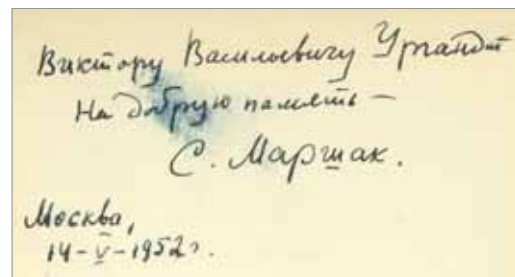 Виктору Васильевичу Ургандт
На добрую память –
С. Маршак.
Москва,
14-V-1952 г.